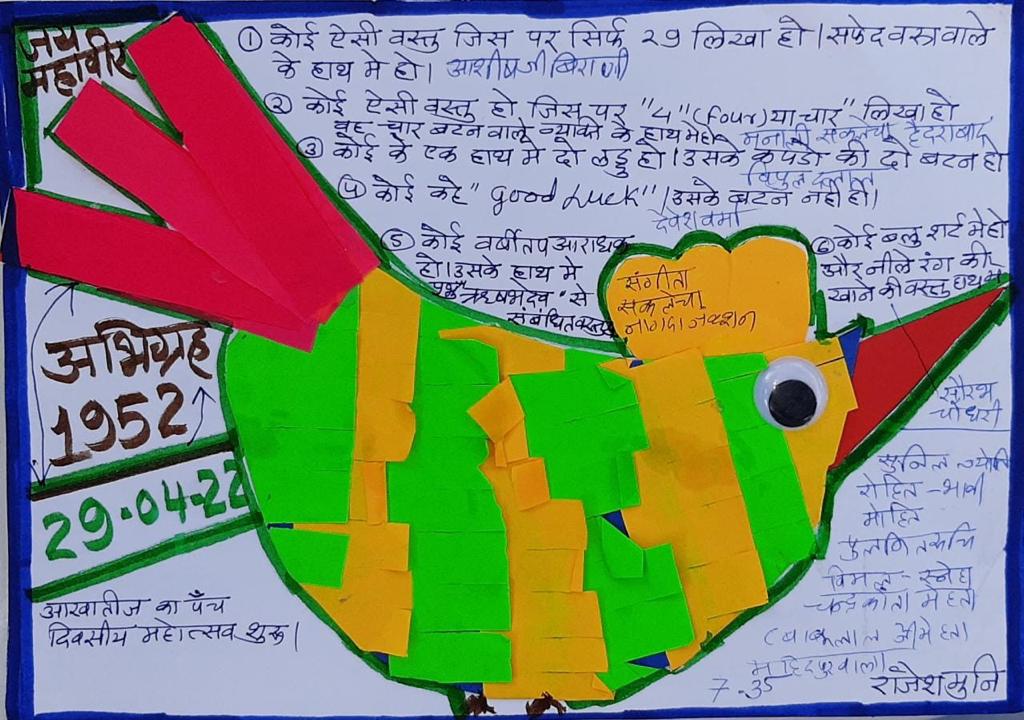 जय
महावीर
① कोई ऐसी वस्तु जिस पर सिर्फ २९ लिखा हो। सफेद वस्त्र वाले
के हाथ मे हो। आशीषजी बिराणी
② कोई ऐसी वस्तु हो जिस पर "4" (four) या चार" लिखा हो
वह चार बटन वाले व्यक्ति के हाथ मे हो मनाली सकलेचा हैदराबाद
③ कोई के एक हाथ मे दो लड्डू हो। उसके कपडो की दो बटन हो
विपुल दलाल
④ कोई कहे "Good Luck" । उसके बटन नही हो।
देवेश वर्मा
⑤ कोई वर्षीतप आराधक
हो। उसके हाथ मे
प्रभु ऋषभदेव" से
संबंधित वस्तु हो
⑥ कोई ब्लु शर्ट मे हो
और नीले रंग की
खाने की वस्तु हाथ मे
संगीता
सकलेचा
नागदा जक्शन
अभिग्रह
1952
29-04-22
आखातीज का पंच
दिवसीय महोत्सव शुरू।
सौरभ
चौधरी
सुनिल ज्योति
रोहित - भावी
मोहित
विमल - स्नेह
चन्द्रकांता मेहता
(बाबूलाल जी मेहता
महिदपुरवाला)
7-35
राजेशमुनि